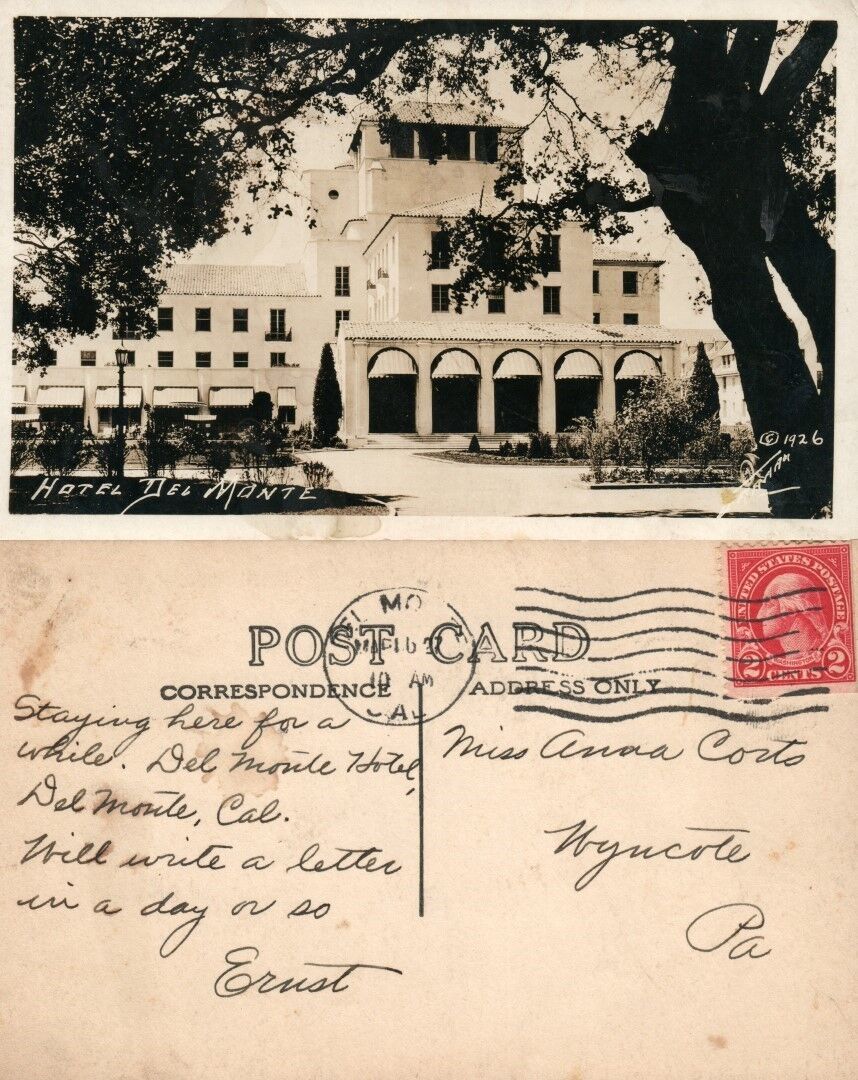 HOTEL DEL MONTE
© 1926
POST CARD
CORRESPONDENCE
ADDRESS ONLY
DEL MO
10 AM
CAL
UNITED STATES POSTAGE
WASHINGTON
2 CENTS 2
Staying here for a
while. Del Monte Hotel,
Del Monte, Cal.
Will write a letter
in a day or so
Ernst
Miss Anna Corts
Wyncote
Pa